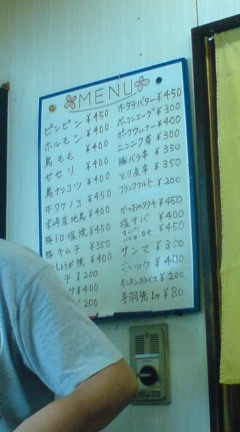 MENU
ピンピン ¥450
ホルモン ¥400
鳥もも ¥400
せせり ¥400
鳥ナンコツ ¥400
牛タケノコ ¥450
宮崎産地鳥 ¥400
豚トロ塩焼 ¥450
豚キムチ ¥350
しょうが焼 ¥400
¥200
¥400
¥200
ホタテバター ¥450
ベーコンエッグ ¥300
ポークウィンナー ¥400
ニンニク青 ¥300
豚バラ串 ¥350
とり皮串 ¥350
フランクフルト ¥200
かつおのタタキ ¥450
塩サバ ¥400
¥450
サンマ
¥400
オニオンスライス ¥200
手羽先1ヶ ¥80